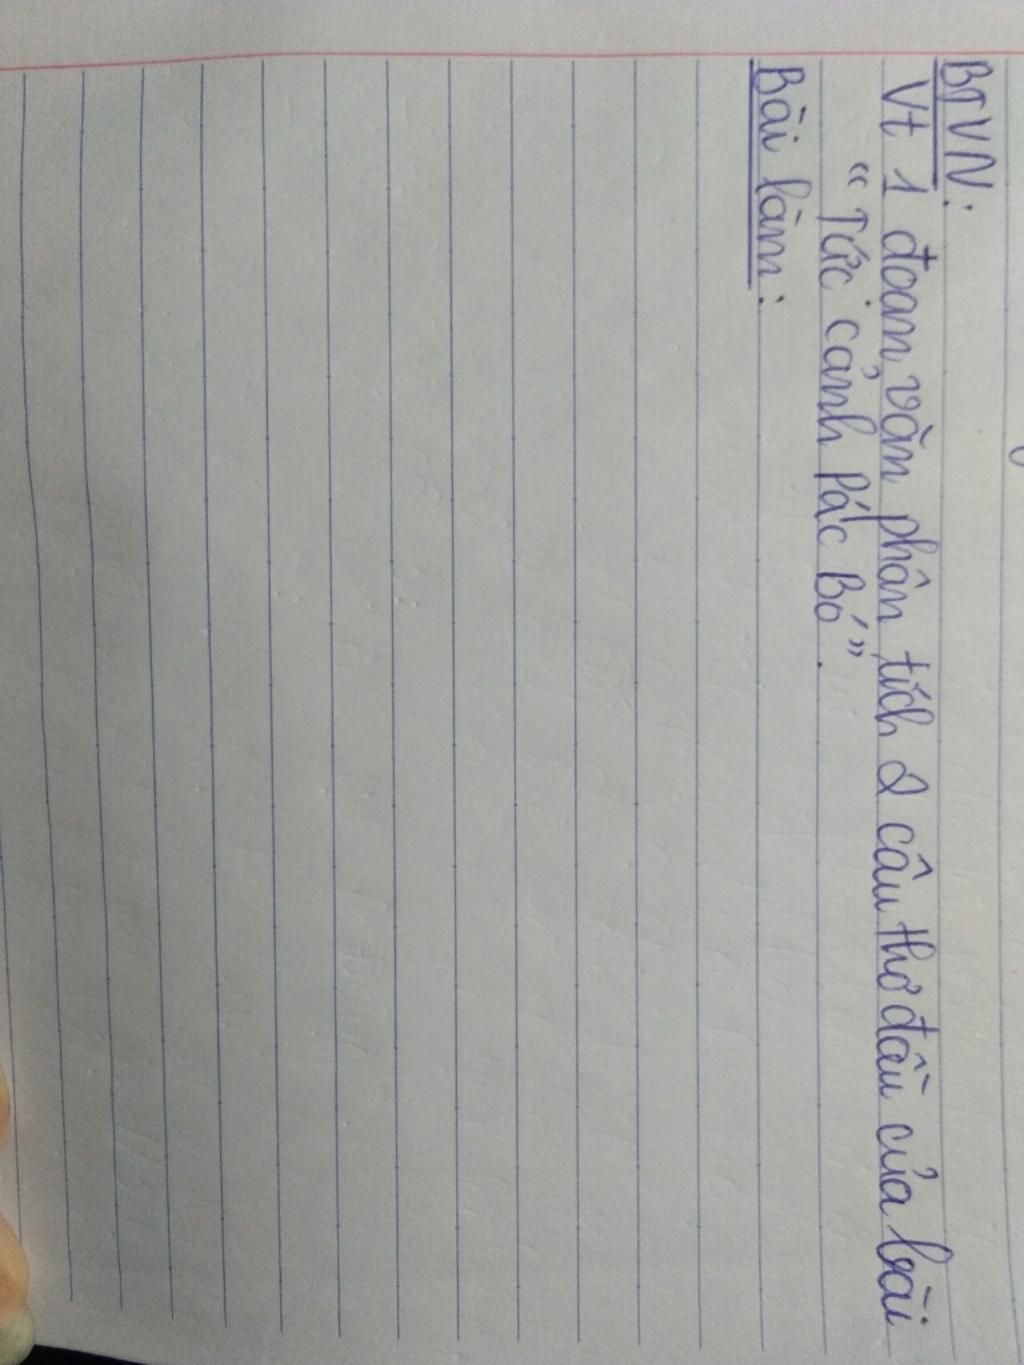 BTVN:
Vt 1 đoạn văn phân tích 2 câu thơ đầu của bài
"Tức cảnh Pác Bó".
Bài làm: